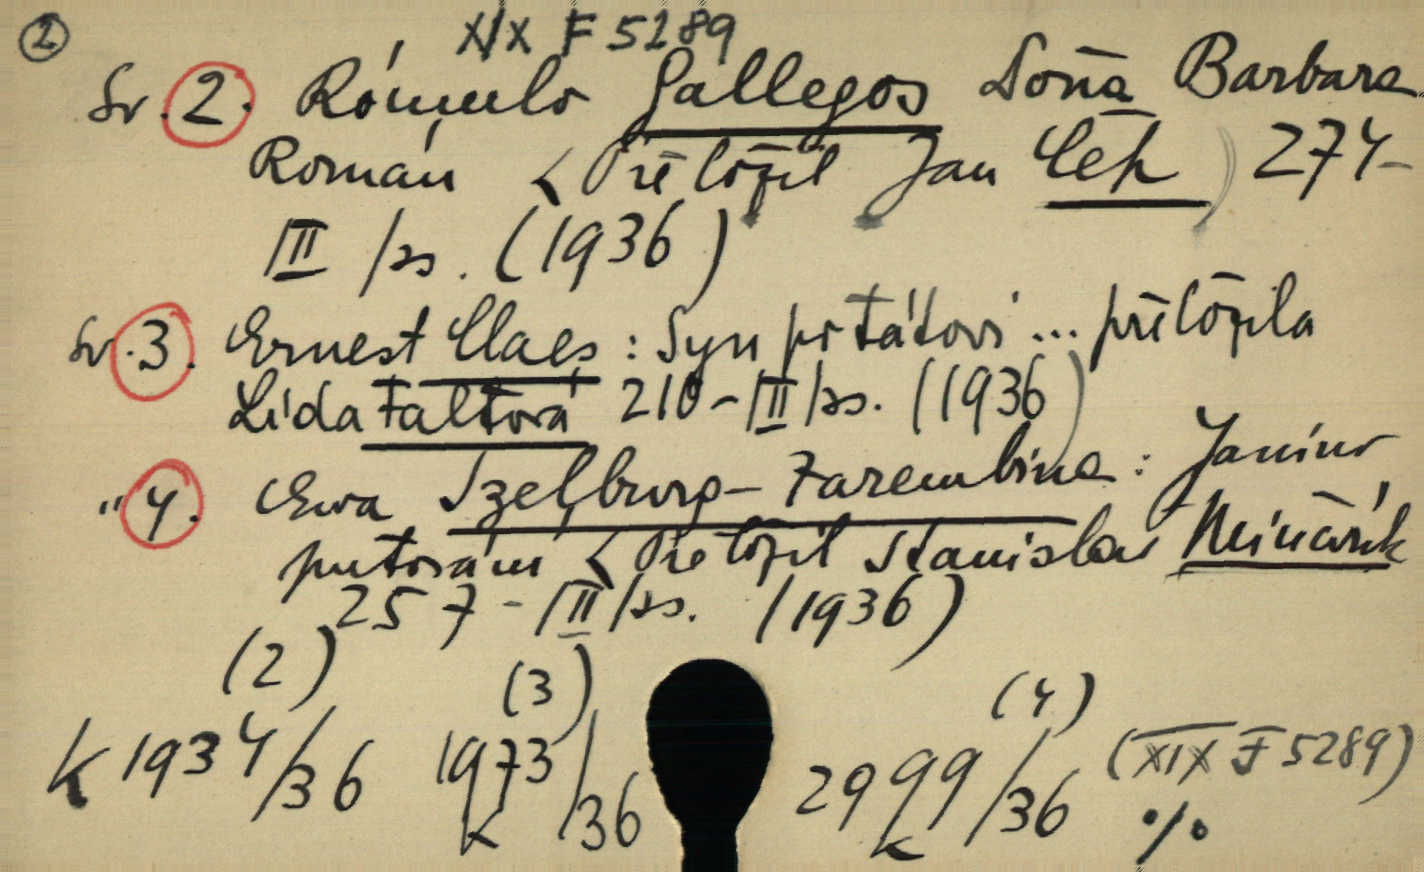 2
XIX F 5289
Sv. 2. Rómulo Gallegos Doña Barbara.
Román < Přeložil Jan Čep ) 274-
III /ss. (1936)
Sv. 3. Ernest Claes: Syn pytlákovi ... přeložila
Lída Faltová 210-III/ss. (1936)
" 4. Ewa Szelburg-Zarembina: Janino
putování < Přeložil Stanislav Minařík
257-III/ss. (1936)
(2) (3) (4)
k 1934/36 1973/36 2999/36 (XIX F 5289)
k k ./.